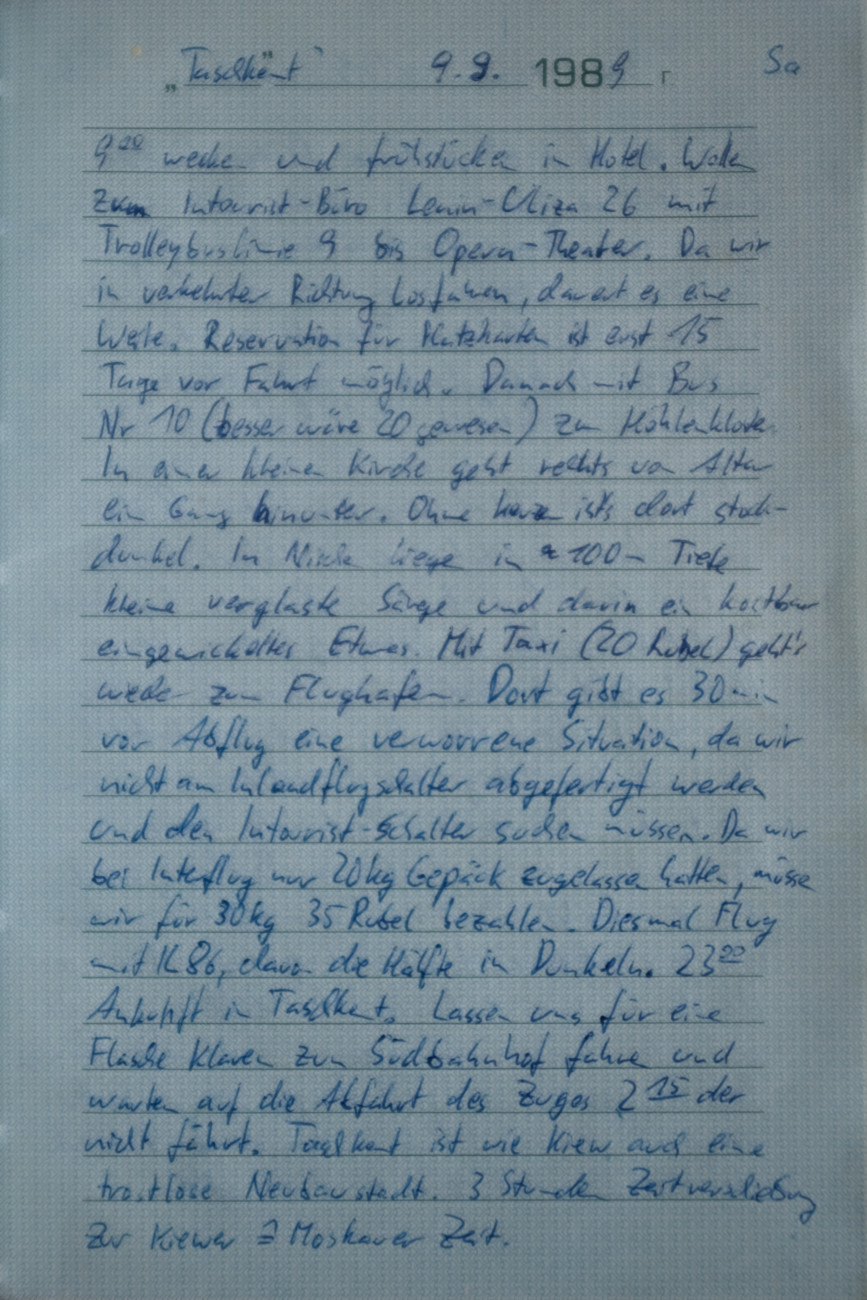 „Taschkent“ 9.9. 1989 г Sa
9⁰⁰ wecken und frühstücken in Hotel. Wollen
zum Intourist-Büro Lenin-Uliza 26 mit
Trolleybuslinie 9 bis Opern-Theater. Da wir
in verkehrter Richtung losfahren, dauert es eine
Weile. Reservation für Platzkarten ist erst 15
Tage vor Fahrt möglich. Danach mit Bus
Nr 10 (besser wäre 20 gewesen) zum Höhlenkloster.
In einer kleinen Kirche geht rechts vom Altar
ein Gang hinunter. Ohne Kerze ist's dort stock-
dunkel. In liegen in ≈ 100m Tiefe
kleine verglaste Särge und darin ein kostbar
eingewickeltes Etwas. Mit Taxi (20 Rubel) geht's
wieder zum Flughafen. Dort gibt es 30min
vor Abflug eine verworrene Situation, da wir
nicht am Inlandflugschalter abgefertigt werden
und den Intourist-Schalter suchen müssen. Da wir
bei Interflug nur 20kg Gepäck zugelassen hatten, müssen
wir für 30kg 35 Rubel bezahlen. Diesmal Flug
mit IL 86, davon die Hälfte in Dunkeln. 23⁰⁰
Ankunft in Taschkent. Lassen uns für eine
Flasche Klaren zum Südbahnhof fahren und
warten auf die Abfahrt des Zuges 2¹⁵ der
nicht fährt. Taschkent ist wie Kiew auch eine
trostlose Neubaustadt. 3 Stunden Zeitverschiebung
zur Kiewer ≙ Moskauer Zeit.